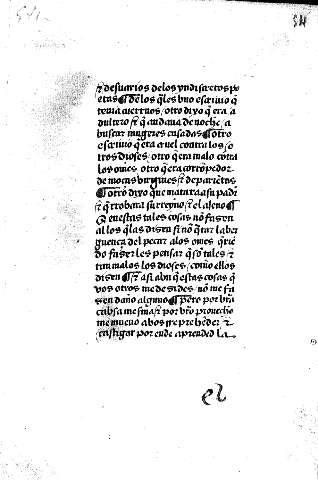 54
& desuarios delos yndiscretos po
etas ¶ delos q̃les vno escriuio q̃
tenia cuernos / otro dixo q̃ era a
dultero & q̃ andaua de noche / a
buscar mugeres casadas ¶ otro
escriuio q̃ era cruel contra los / o
tros dioses / otro q̃ era malo contra
los omes / otro q̃ era corrõpedor
de moças virgines & de parientas
¶ otro dixo que matara a su padre
& q̃ robara su reyno / & el ageno ¶
E en estas tales cosas nõ fasen
al los q̃ las disen si nõ q̃tar la ver
guença del pecar alos omes q̃rie
do faser les pensar q̃ sõ tales &
tan malos los dioses / como ellos
disen ¶ & asi abn q̃ estas cosas q̃
vos otros me desides / nõ me fa
sen daño alguno ¶ pero por vr̃a
cabsa mesma & por vr̃o prouecho
me mueuo a vos reprehẽder &
castigar por ende aprended la
el